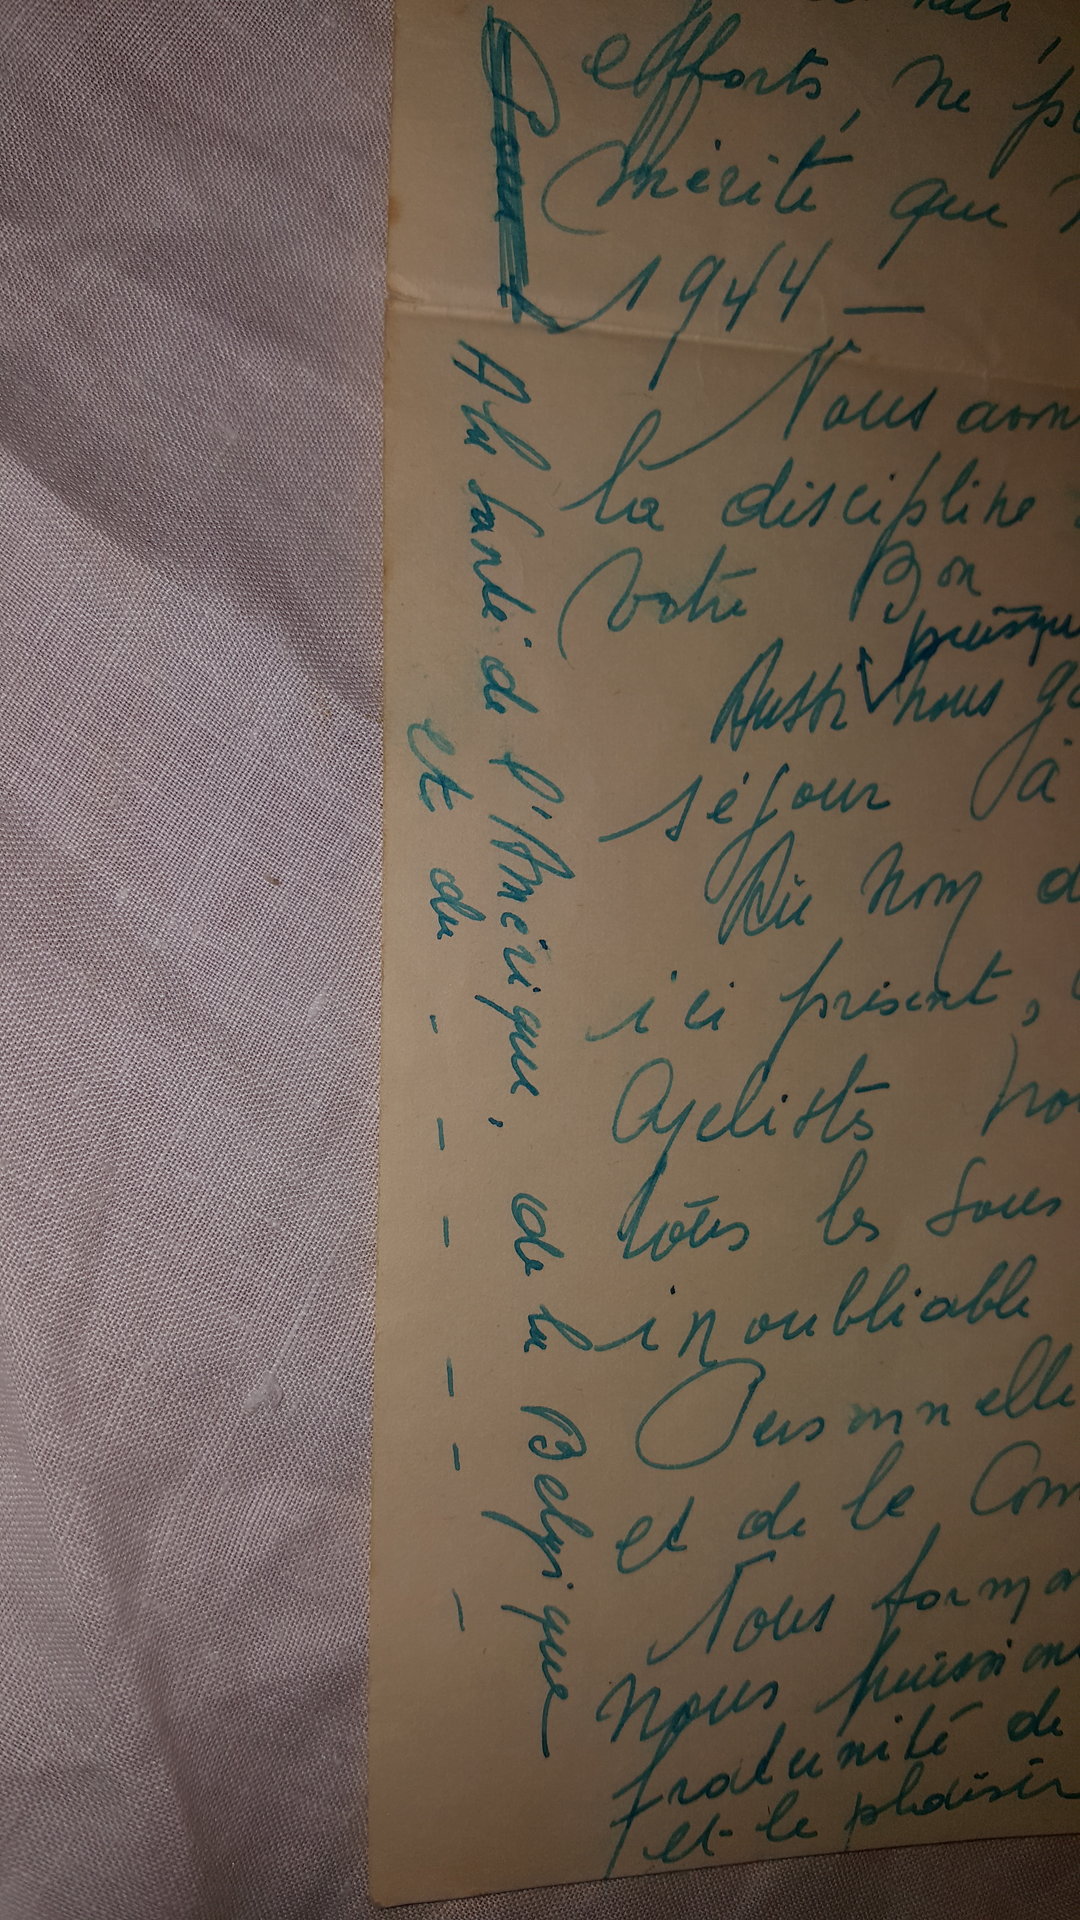 efforts, ne p
mérité que n
1944 —
Nous avons
la discipline
votre Bon
puisque
Aussi nous ga
séjour à
Au nom d
ici présent,
Cyclistes no
tous les sous
inoubliable
Personnelle
et de la Com
Nous formon
nous puissions
fraternité de
et le plaisir
A la santé de l'Amérique, de la Belgique
et du - - - - - -